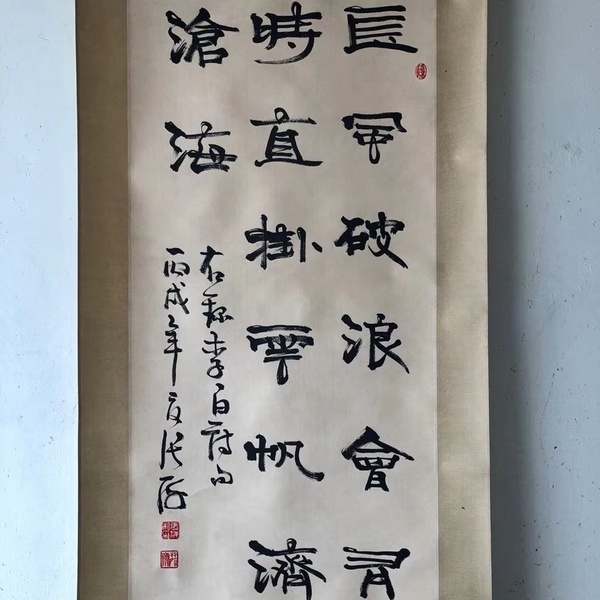 長風破浪會有
時直掛雲帆濟
滄海
右録李白詩句
丙戌年